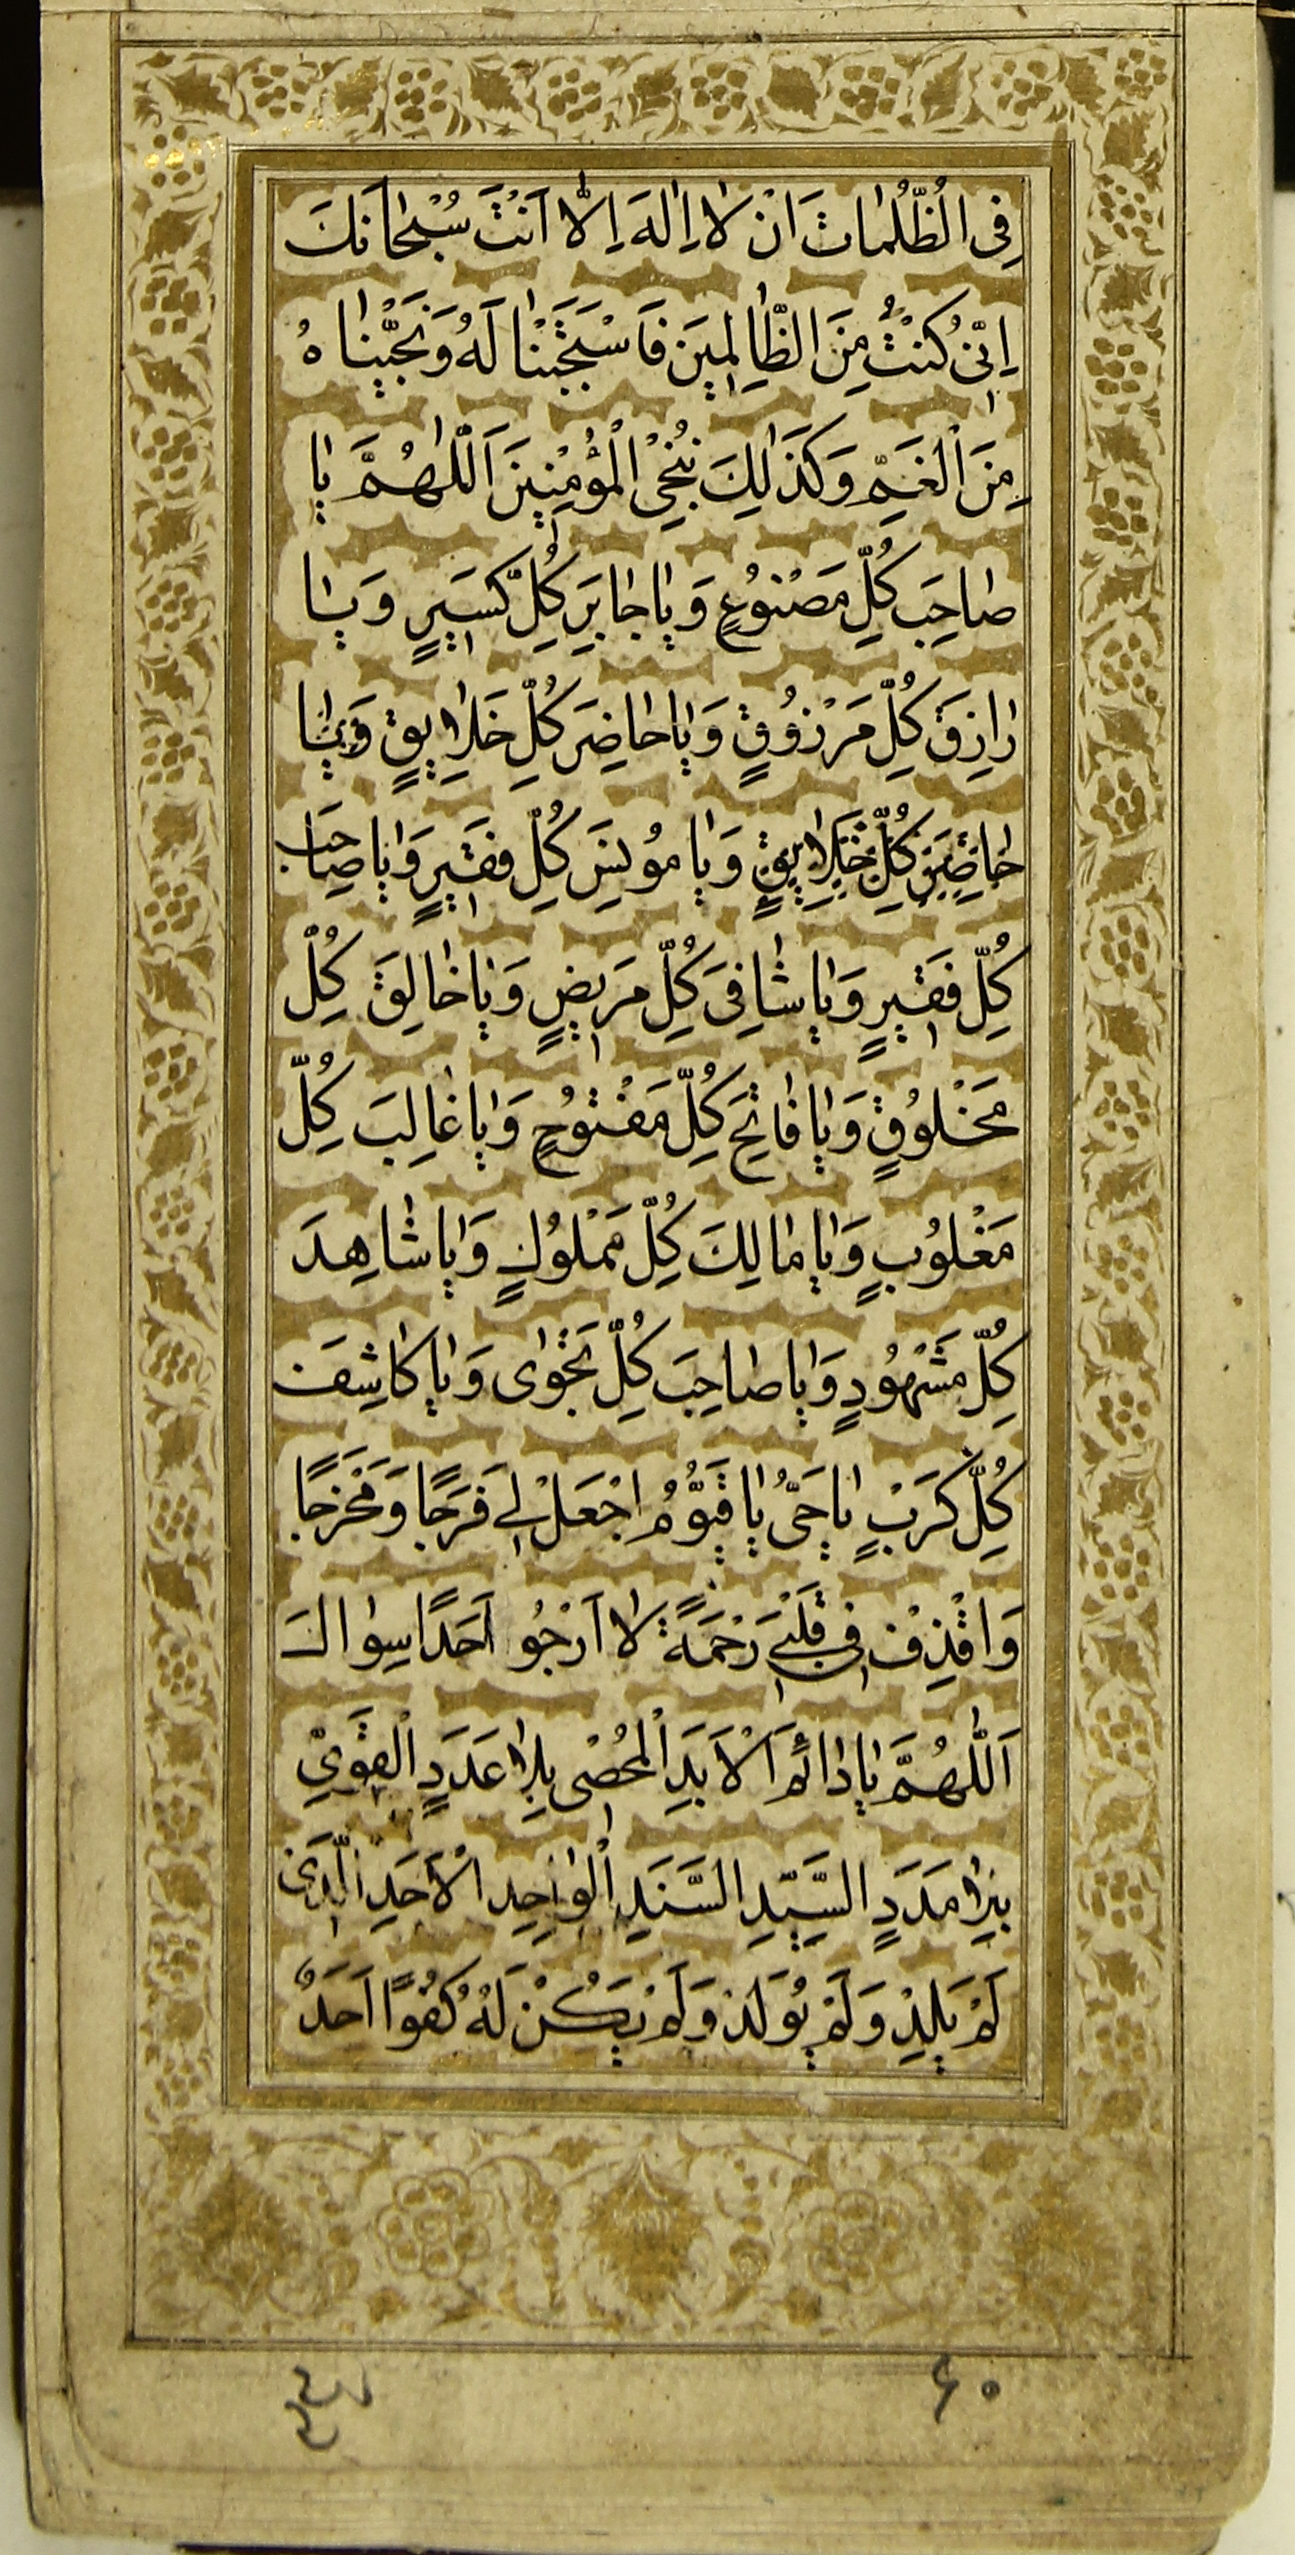 فِى الظُّلُمٰاتِ اَنْ لٰا اِلٰهَ اِلّٰا اَنْتَ سُبْحٰانَكَ
اِنّىٖ كُنْتُ مِنَ الظّٰالِمٖينَ فَاسْتَجَبْنٰا لَهُ وَنَجَّيْنٰاهُ
مِنَ الْغَمِّ وَكَذٰالِكَ نُنْجِى الْمُؤْمِنٖينَ اَللّٰهُمَّ يٰا
صٰاحِبَ كُلِّ مَصْنُوعٍ وَيٰا جٰابِرَ كُلِّ كَسٖيرٍ وَيٰا
رٰازِقَ كُلِّ مَرْزُوقٍ وَيٰا حٰاضِرَ كُلِّ خَلٰايِقٍ وَيٰا
حٰاضِرَ كُلِّ خَلٰايِقٍ وَيٰا مُونِسَ كُلِّ فَقٖيرٍ وَيٰا صٰاحِبَ
كُلِّ فَقٖيرٍ وَيٰا شٰافِىَ كُلِّ مَرٖيضٍ وَيٰا خٰالِقَ كُلِّ
مَخْلُوقٍ وَيٰا فٰاتِحَ كُلِّ مَفْتُوحٍ وَيٰا غٰالِبَ كُلِّ
مَغْلُوبٍ وَيٰا مٰالِكَ كُلِّ مَمْلُوكٍ وَيٰا شٰاهِدَ
كُلِّ مَشْهُودٍ وَيٰا صٰاحِبَ كُلِّ نَجْوٰاى وَيٰا كٰاشِفَ
كُلِّ كَرْبٍ يٰا حَىُّ يٰا قَيُّومُ اجْعَلْ لىٖ فَرَجًا وَمَخْرَجًا
وَاقْذِفْ فىٖ قَلْبىٖ رَحْمَةً لٰا اَرْجُو اَحَدًا سِوٰاكَ
اَللّٰهُمَّ يٰا دٰائِمَ الْاَبَدِ الْمُحْصىٖ بِلٰا عَدَدٍ الْقَوِىِّ
بِلٰا مَدَدٍ السَّيِّدِ السَّنَدِ الْوٰاحِدِ الْاَحَدِ الَّذىٖ
لَمْ يَلِدْ وَلَمْ يُولَدْ وَلَمْ يَكُنْ لَهُ كُفُوًا اَحَدٌ